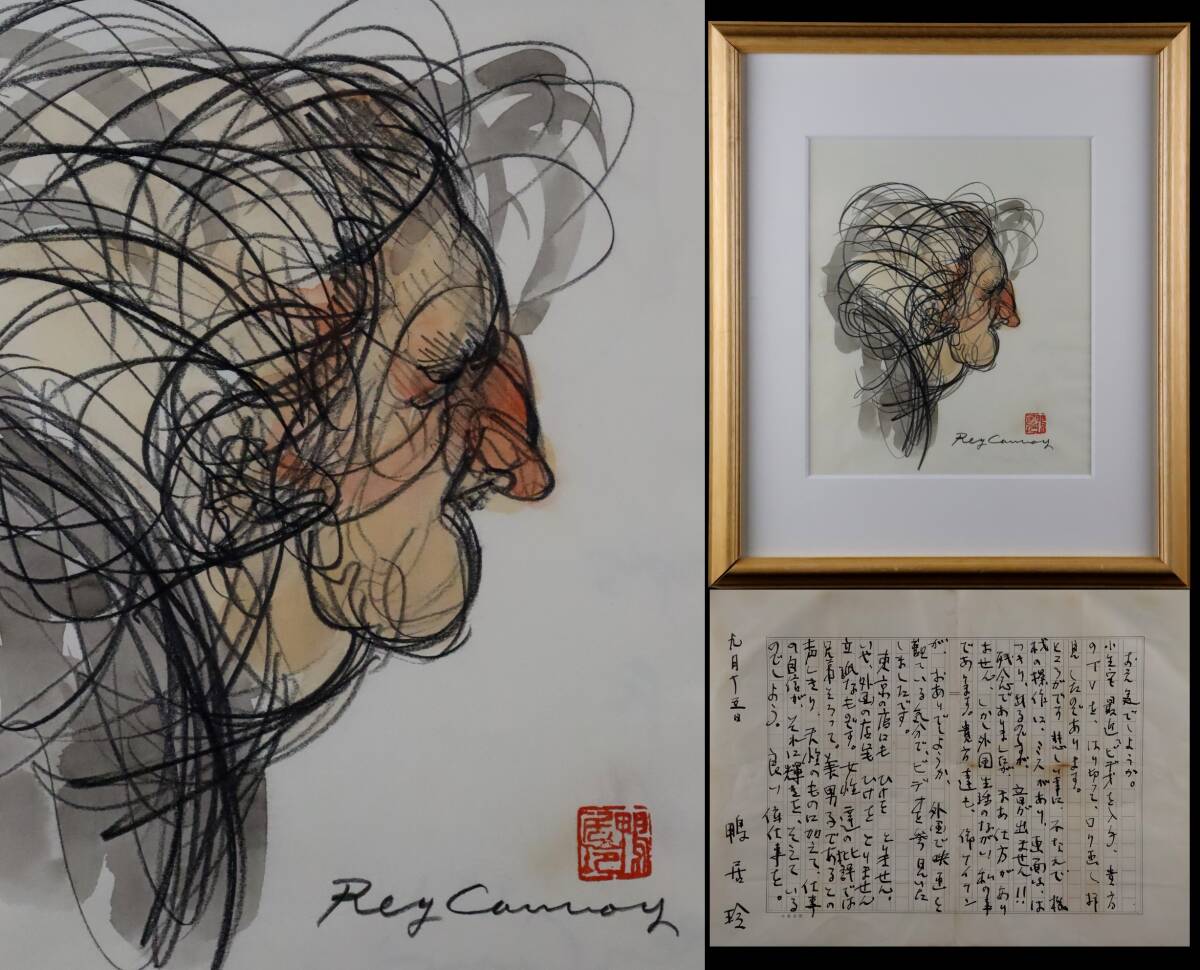 Rey Camoy
Rey Camoy
お元気でしようか。
小生宅 最近、ビデオを入手、貴方
のTVを、はり切って、ロク画し拝
見したのであります。
ところがです 悲しい事に、不なれで 機
械の操作に、ミスがあり、画面は、は
っきり、出るんですが、音が出ません!!
残念でありましたが、まあ仕方があり
ません。しかし外国生活のながい私の事
であります。貴方達も、御ケイケン
が、おありでしょうか、外国で映画を
観ている気分で、ビデオを拝見いた
しましたです。
東京の店にも ひけを とりません。
いや、外国の店にも ひけを とりません
立派なものです。女性達の批評では
兄弟そろって、美男子であるとの
声しきり、天性のものに加えて、仕事
の自信が、それに輝きを、そえている
のでしょう。良い御仕事を。
九月十五日
鴨居玲